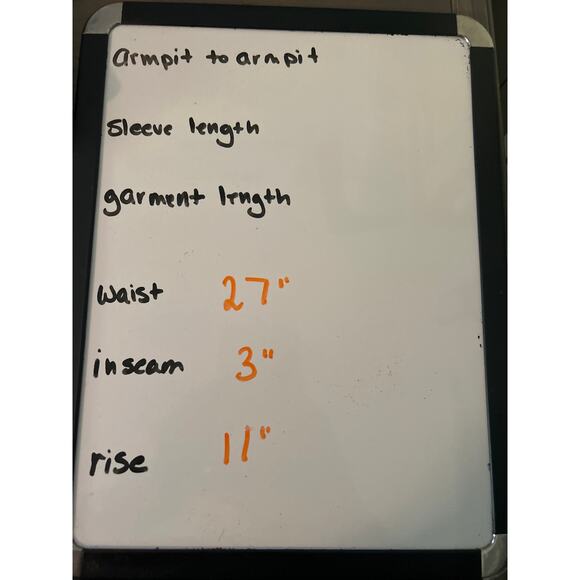 armpit to armpit
Sleeve length
garment length
Waist 27"
inseam 3"
rise 11"